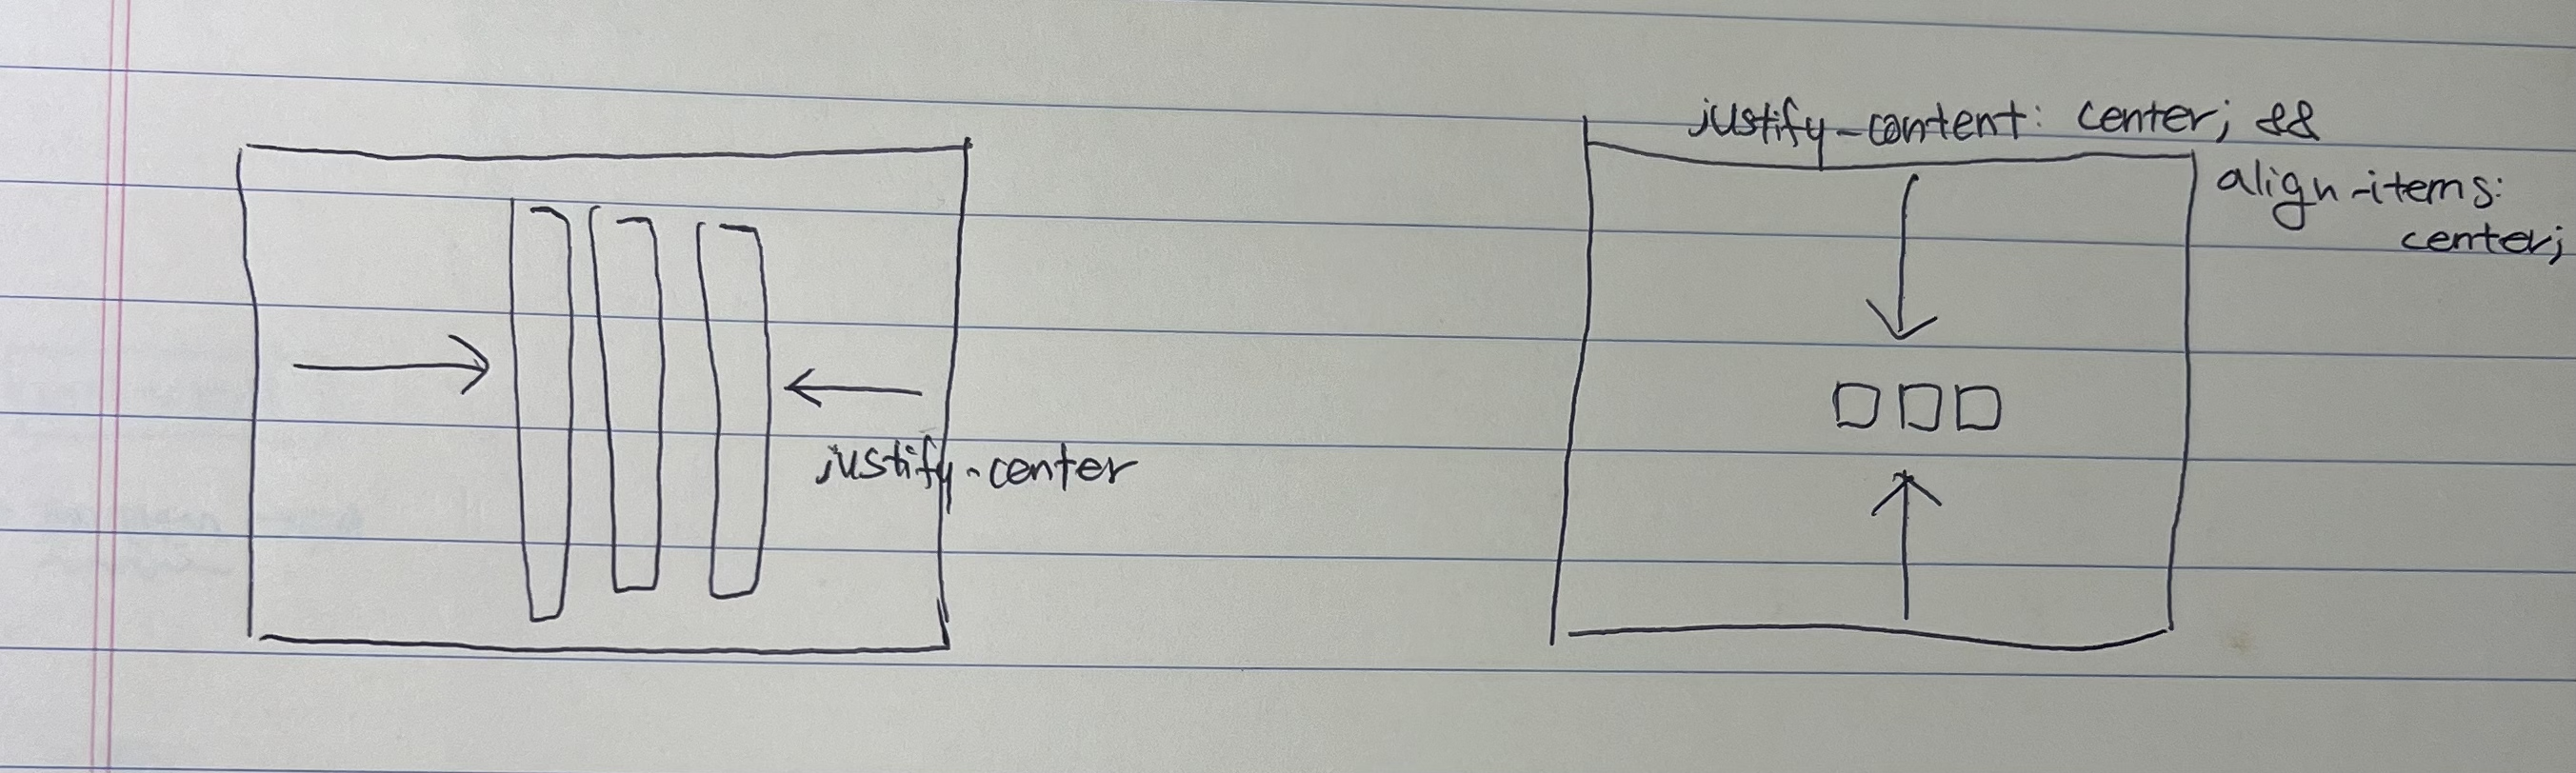 justify-center
justify-content: center; &&
align-items:
center;